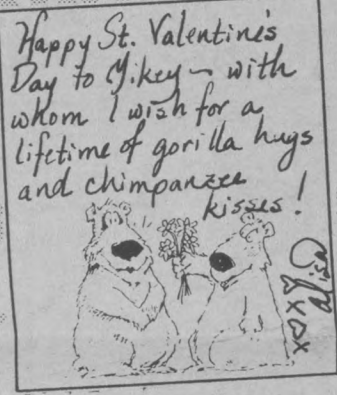 Happy St. Valentine's
Day to Mikey — with
whom I wish for a
lifetime of gorilla hugs
and chimpanzee
kisses!
Lisa
XOX